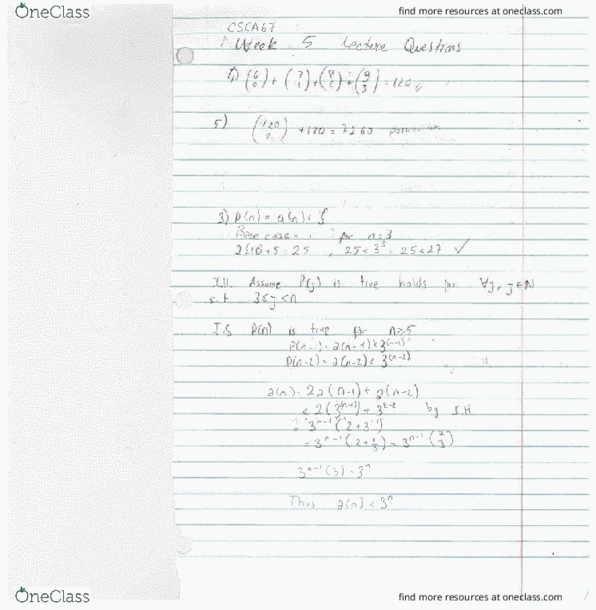 OneClass
find more resources at oneclass.com
CSCA67
Week 5 Lecture Questions
(6 0) + (7 1) + (8 2) + (9 3) = 120
5) (120 2) + 120 = 7260
3) P(n) = a(n) < 3^n
Base case for n=3
2(10)+5 = 25 , 25 < 3^3 = 25 < 27 ✓
I.H. Assume P(j) is true holds for ∀j, j∈N
s.t 3≤j<n
I.S P(n) is true for n≥5
P(n-1) = a(n-1) < 3^(n-1)
P(n-2) = a(n-2) < 3^(n-2)
a(n) = 2a(n-1) + a(n-2)
< 2(3^(n-1)) + 3^(n-2) by I.H
= 3^(n-1)(2+3^-1)
= 3^(n-1)(2+1/3) = 3^(n-1)(7/3)
3^(n-1)(3) = 3^n
Thus a(n) < 3^n
OneClass
find more resources at oneclass.com